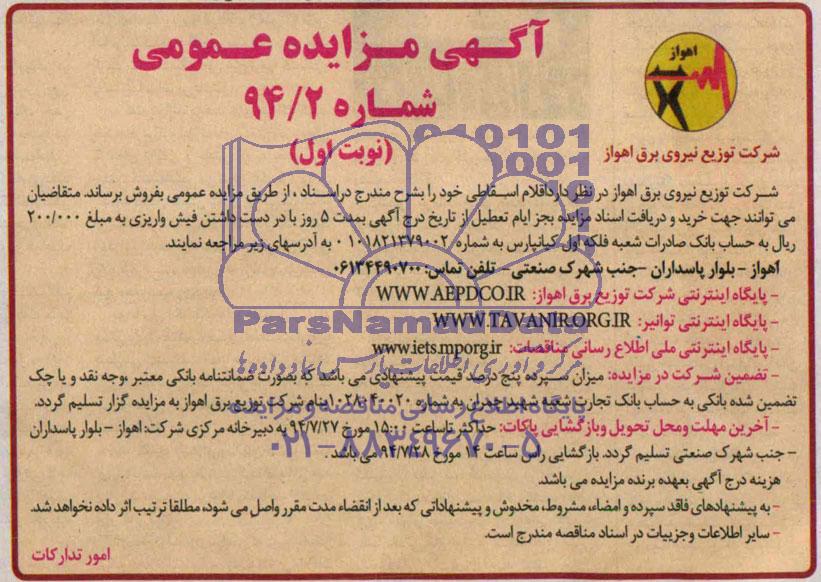 آگهی مزایده عمومی
شماره ۹۴/۲
(نوبت اول)
اهواز
شرکت توزیع نیروی برق اهواز
شرکت توزیع نیروی برق اهواز در نظر دارد اقلام اسقاطی خود را بشرح مندرج در اسناد ، از طریق مزایده عمومی بفروش برساند. متقاضیان
می توانند جهت خرید و دریافت اسناد مزایده بجز ایام تعطیل از تاریخ درج آگهی بمدت ۵ روز با در دست داشتن فیش واریزی به مبلغ ۲۰۰/۰۰۰
ریال به حساب بانک صادرات شعبه فلکه اول کیانپارس به شماره ۰۱۰۱۸۲۱۳۷۹۰۰۲ به آدرسهای زیر مراجعه نمایند.
اهواز - بلوار پاسداران - جنب شهرک صنعتی - تلفن تماس: ۰۶۱۳۴۴۹۰۷۰۰
- پایگاه اینترنتی شرکت توزیع برق اهواز: WWW.AEPDCO.IR
- پایگاه اینترنتی توانیر: WWW.TAVANIR.ORG.IR
- پایگاه اینترنتی ملی اطلاع رسانی مناقصات: www.iets.mporg.ir
- تضمین شرکت در مزایده: میزان سپرده پنج درصد قیمت پیشنهادی می باشد که بصورت ضمانتنامه بانکی معتبر ،وجه نقد و یا چک
تضمین شده بانکی به حساب بانک تجارت شعبه شهید چمران به شماره بنام شرکت توزیع برق اهواز به مزایده گزار تسلیم گردد.
- آخرین مهلت ومحل تحویل وبازگشایی پاکات: حداکثر تا ساعت ۱۵:۰۰ مورخ ۹۴/۷/۲۷ به دبیرخانه مرکزی شرکت: اهواز - بلوار پاسداران
- جنب شهرک صنعتی تسلیم گردد. بازگشایی راس ساعت ۱۴ مورخ ۹۴/۷/۲۸ می باشد .
هزینه درج آگهی بعهده برنده مزایده می باشد.
- به پیشنهادهای فاقد سپرده و امضاء، مشروط، مخدوش و پیشنهاداتی که بعد از انقضاء مدت مقرر واصل می شود، مطلقا ترتیب اثر داده نخواهد شد.
- سایر اطلاعات وجزییات در اسناد مناقصه مندرج است.
امور تدارکات
ParsNamadData
مرکز فرآوری اطلاعات پارس نماد داده ها
پایگاه اطلاع رسانی مناقصه و مزایده
۰۲۱-۸۸۳۴۹۶۷۰-۵